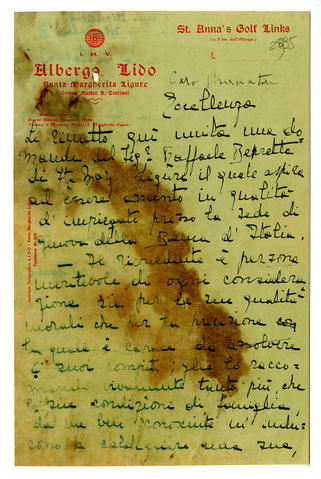 St. Anna's Golf Links
I. H. V.
Albergo Lido
Santa Margherita Ligure
Comm. Matteo B. Torriani
Caro
Eccellenza
Le rimetto qui unita una do
manda del Sig. Raffaele
di St. Mar. Ligure il quale aspira
ad essere assunto in qualità
d'impiegato presso la sede di
Genova della Banca d'Italia.
- Il richiedente è persona
meritevole di ogni considera
zione sia per le sue qualità
morali che per la precisione con
la quale è capace di assolvere
i suoi compiti; glielo racco-
mando vivamente tanto più che
le sue condizioni di famiglia,
da me ben conosciute m'indu-
cono a caldeggiare una sua,